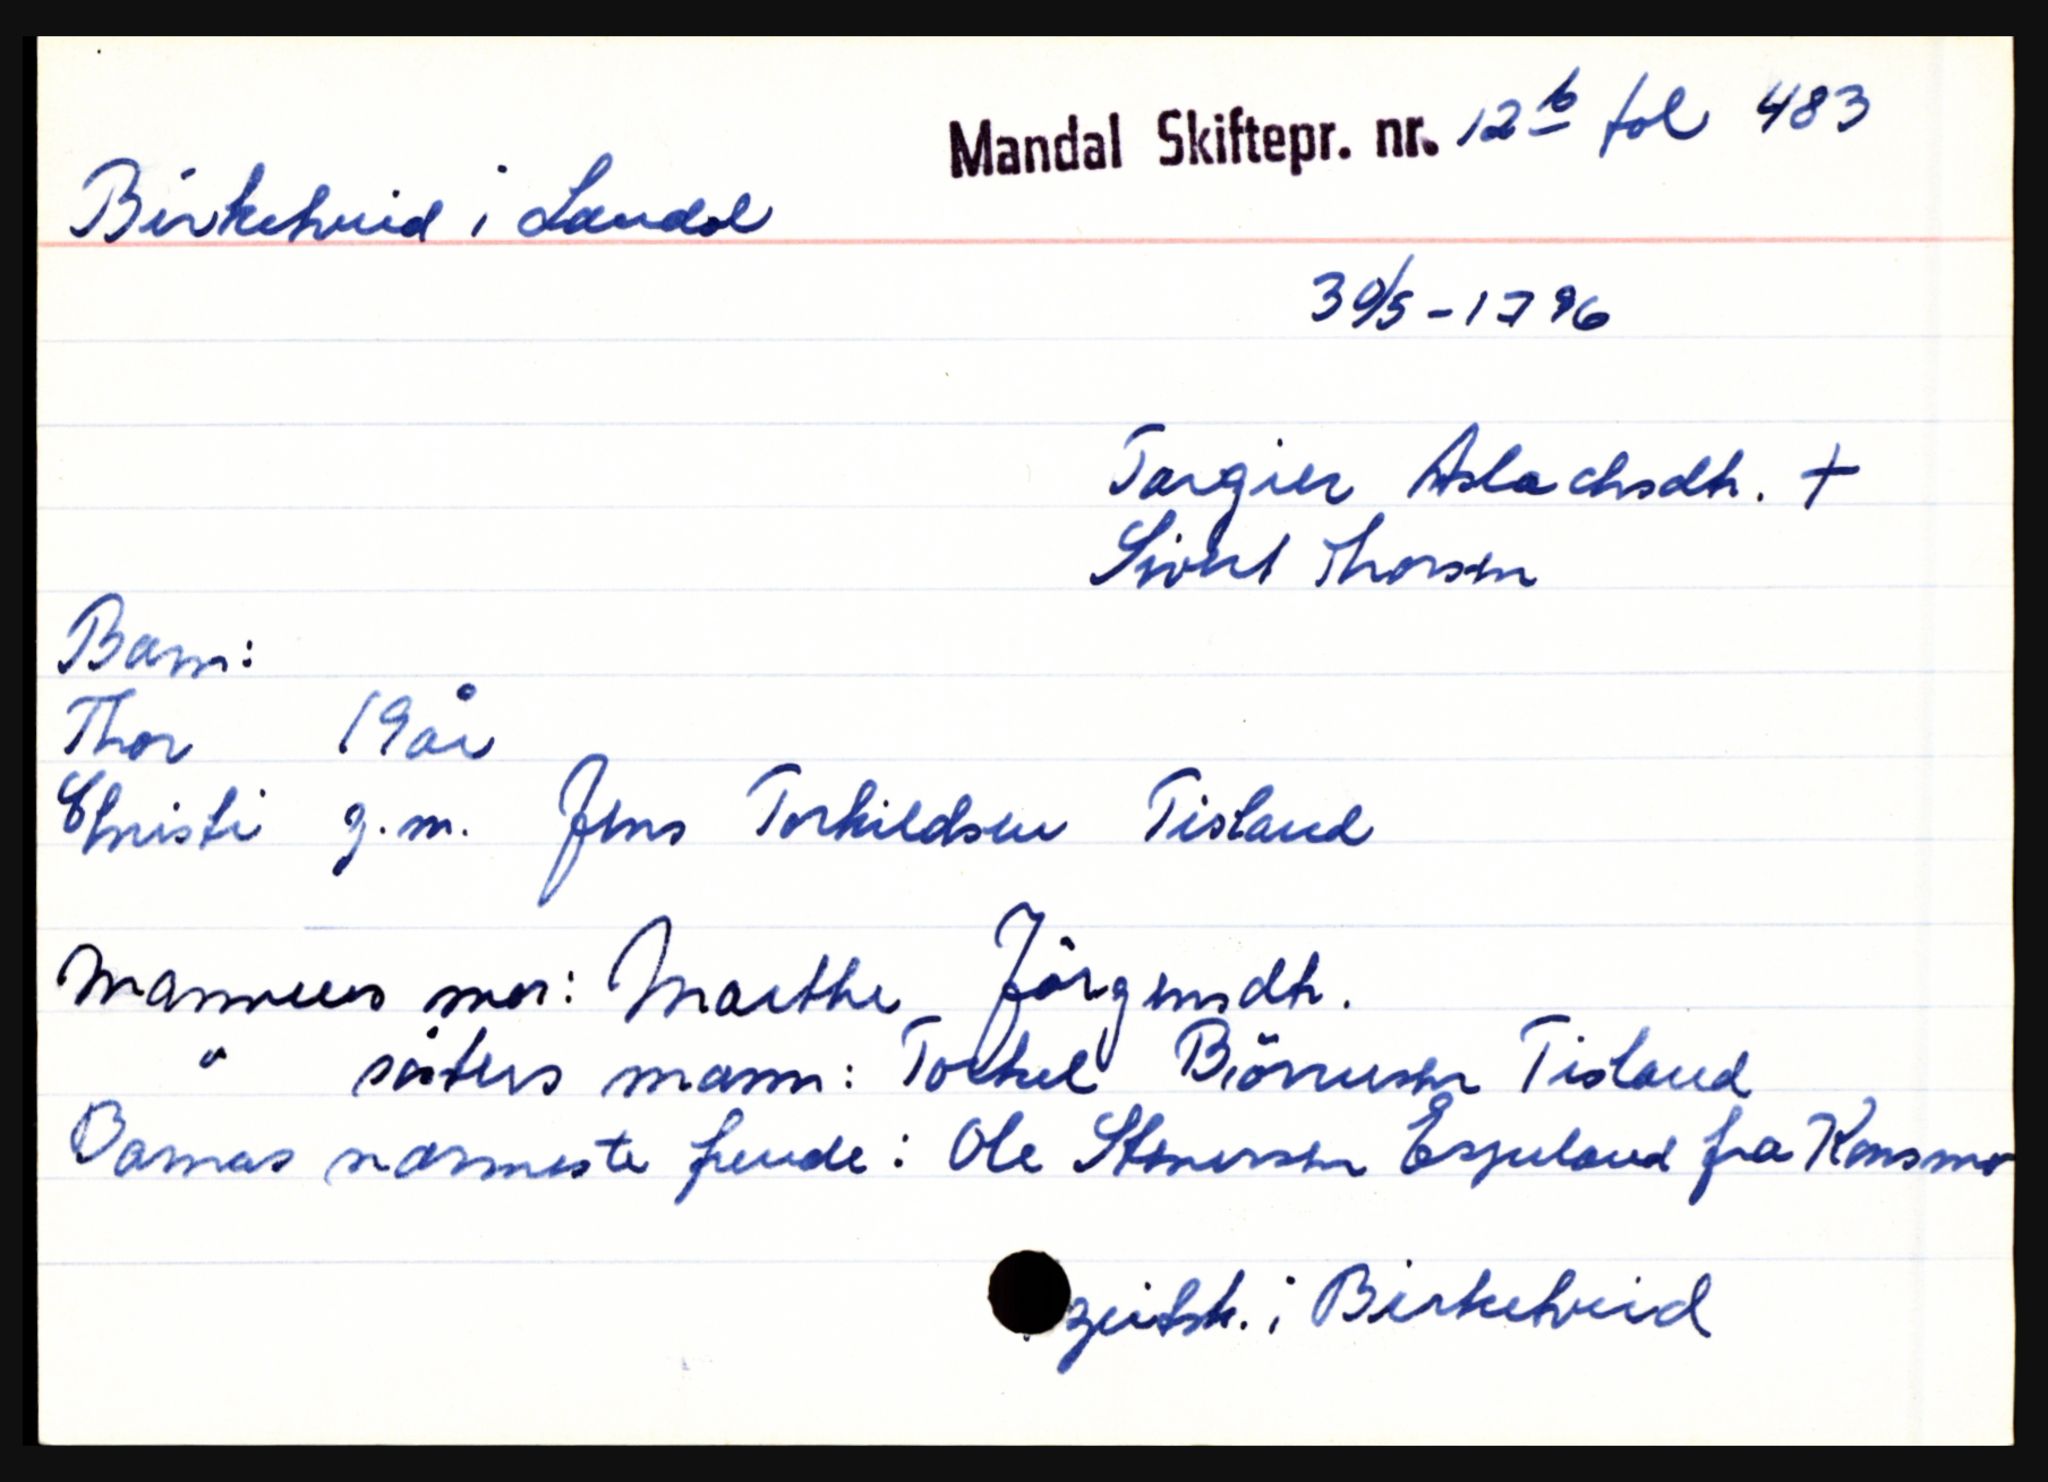 Mandal Skiftepr. nr. 12 b fol 483
Birkehvid i Laudal
30/5-1796
Targier Aslachsdtr. +
Sivert Thorsen
Barn:
Thor 19 år
Christi g.m. Jens Torkildsen Tisland
Mannens mor: Marthe Jörgensdtr.
" sösters mann: Torkel Biörnesen Tisland
Barnas nærmeste frende: Ole Stenersen Espeland fra Konsmo
i Birkehvid